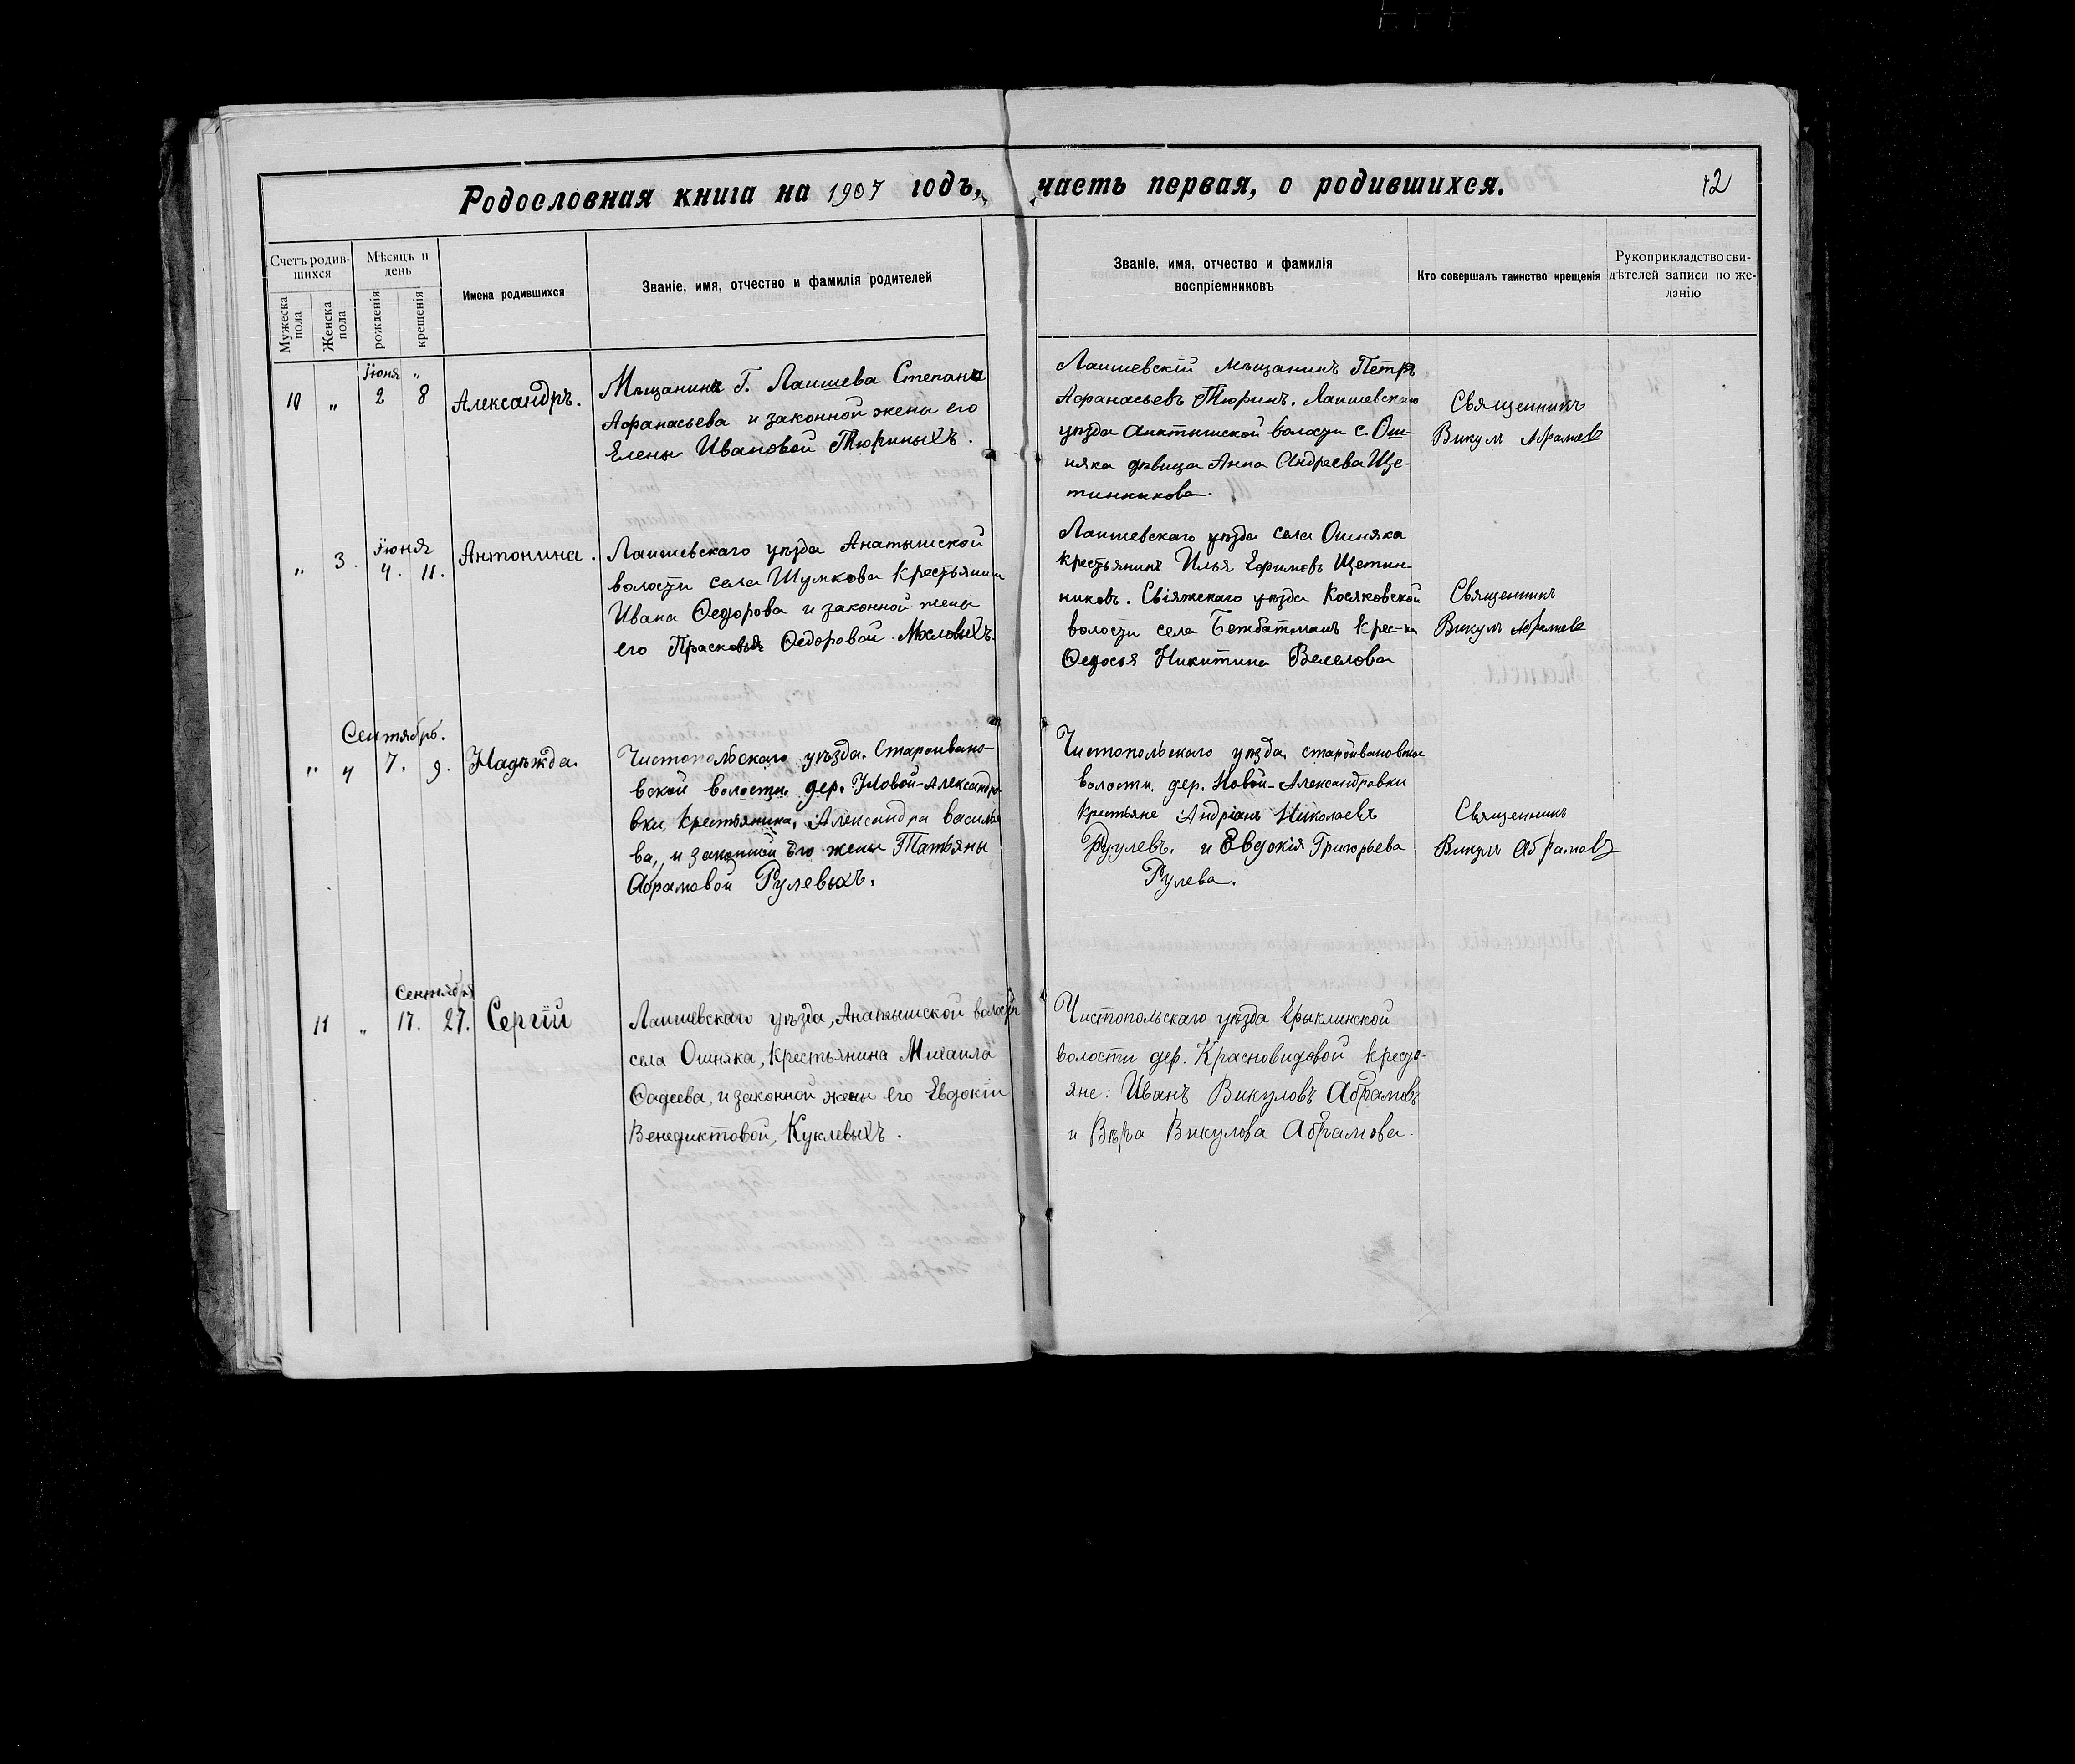 Родословная книга на 1907 годъ, часть первая, о родившихся.
12
Счетъ родив-
шихся
Мужеска
пола
Женска
пола
Мѣсяцъ и
день
рожденія
крещенія
Имена родившихся
Званіе, имя, отчество и фамилія родителей
Званіе, имя, отчество и фамилія
воспріемниковъ
Кто совершалъ таинство крещенія
Рукоприкладство сви-
дѣтелей записи по же-
ланію
Іюня „
10 „ 2 8 Александръ.
Мѣщанина Г. Лаишева Степана
Афанасьева и законной жены его
Елены Ивановой Тюриныхъ.
Лаишевскій мѣщанинъ Петръ
Афанасьевъ Тюринъ. Лаишевскаго
уѣзда Анатышской волости с. Ош-
няка дѣвица Анна Андреева Ще-
тинникова.
Священникъ
Викулъ Абрамовъ
Іюня
„ 3. 4. 11. Антонина.
Лаишевскаго уѣзда Анатышской
волости села Шумкова крестьянина
Ивана Ѳедорова и законной жены
его Прасковьи Ѳедоровой Масловыхъ.
Лаишевскаго уѣзда села Ошняка
крестьянинъ Илья Ефимовъ Щетин-
никовъ. Свіяжскаго уѣзда Косяковской
волости села Бежбатманъ крес-ка
Ѳедосья Никитина
Священникъ
Викулъ Абрамовъ
Сентябрь.
„ 4 7. 9. Надежда.
Чистопольскаго уѣзда. Староивано-
вской волости. дер. Новой-Александро-
вки, крестьянина, Александра Василье
ва, и законной его жены Татьяны
Абрамовой Рулевыхъ.
Чистопольскаго уѣзда, староивановской
волости, дер. Новой-Александровки
крестьяне Андріанъ Николаевъ
Руулевъ. и Евдокія Григорьева
Рулева.
Священникъ
Викулъ Абрамовъ
Сентября
11 „ 17. 27. Сергій
Лаишевскаго уѣзда, Анатышской волости
села Ошняка, крестьянина Михаила
Ѳадеева, и законной жены его Евдокіи
Венедиктовой, Куклевыхъ.
Чистопольскаго уѣзда Ерыклинской
волости дер. Красновидовой кресть-
яне: Иванъ Викуловъ Абрамовъ
и Вѣра Викулова Абрамова.